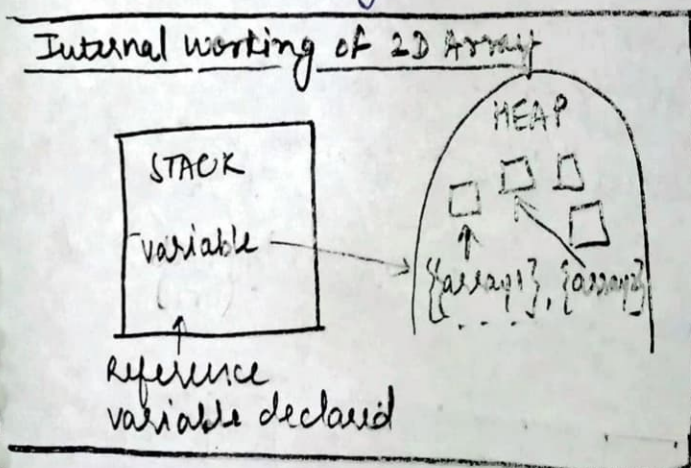 Internal Working of 2D Array
HEAP
STACK
variable
{{array1}, {array2}
. . . .
Reference
variable declared